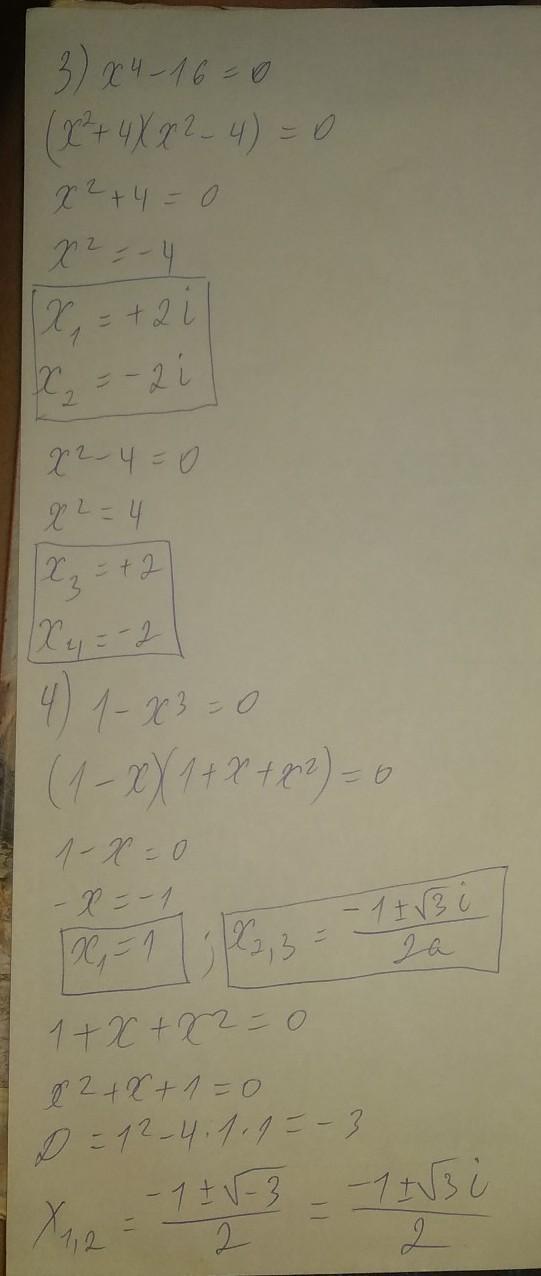 3) x⁴ - 16 = 0
(x² + 4)(x² - 4) = 0
x² + 4 = 0
x² = -4
x₁ = +2i
x₂ = -2i
x² - 4 = 0
x² = 4
x₃ = +2
x₄ = -2
4) 1 - x³ = 0
(1 - x)(1 + x + x²) = 0
1 - x = 0
-x = -1
x₁ = 1 ; x₂,₃ = (-1 ± √3 i)/2a
1 + x + x² = 0
x² + x + 1 = 0
D = 1² - 4·1·1 = -3
x₁,₂ = (-1 ± √-3)/2 = (-1 ± √3 i)/2